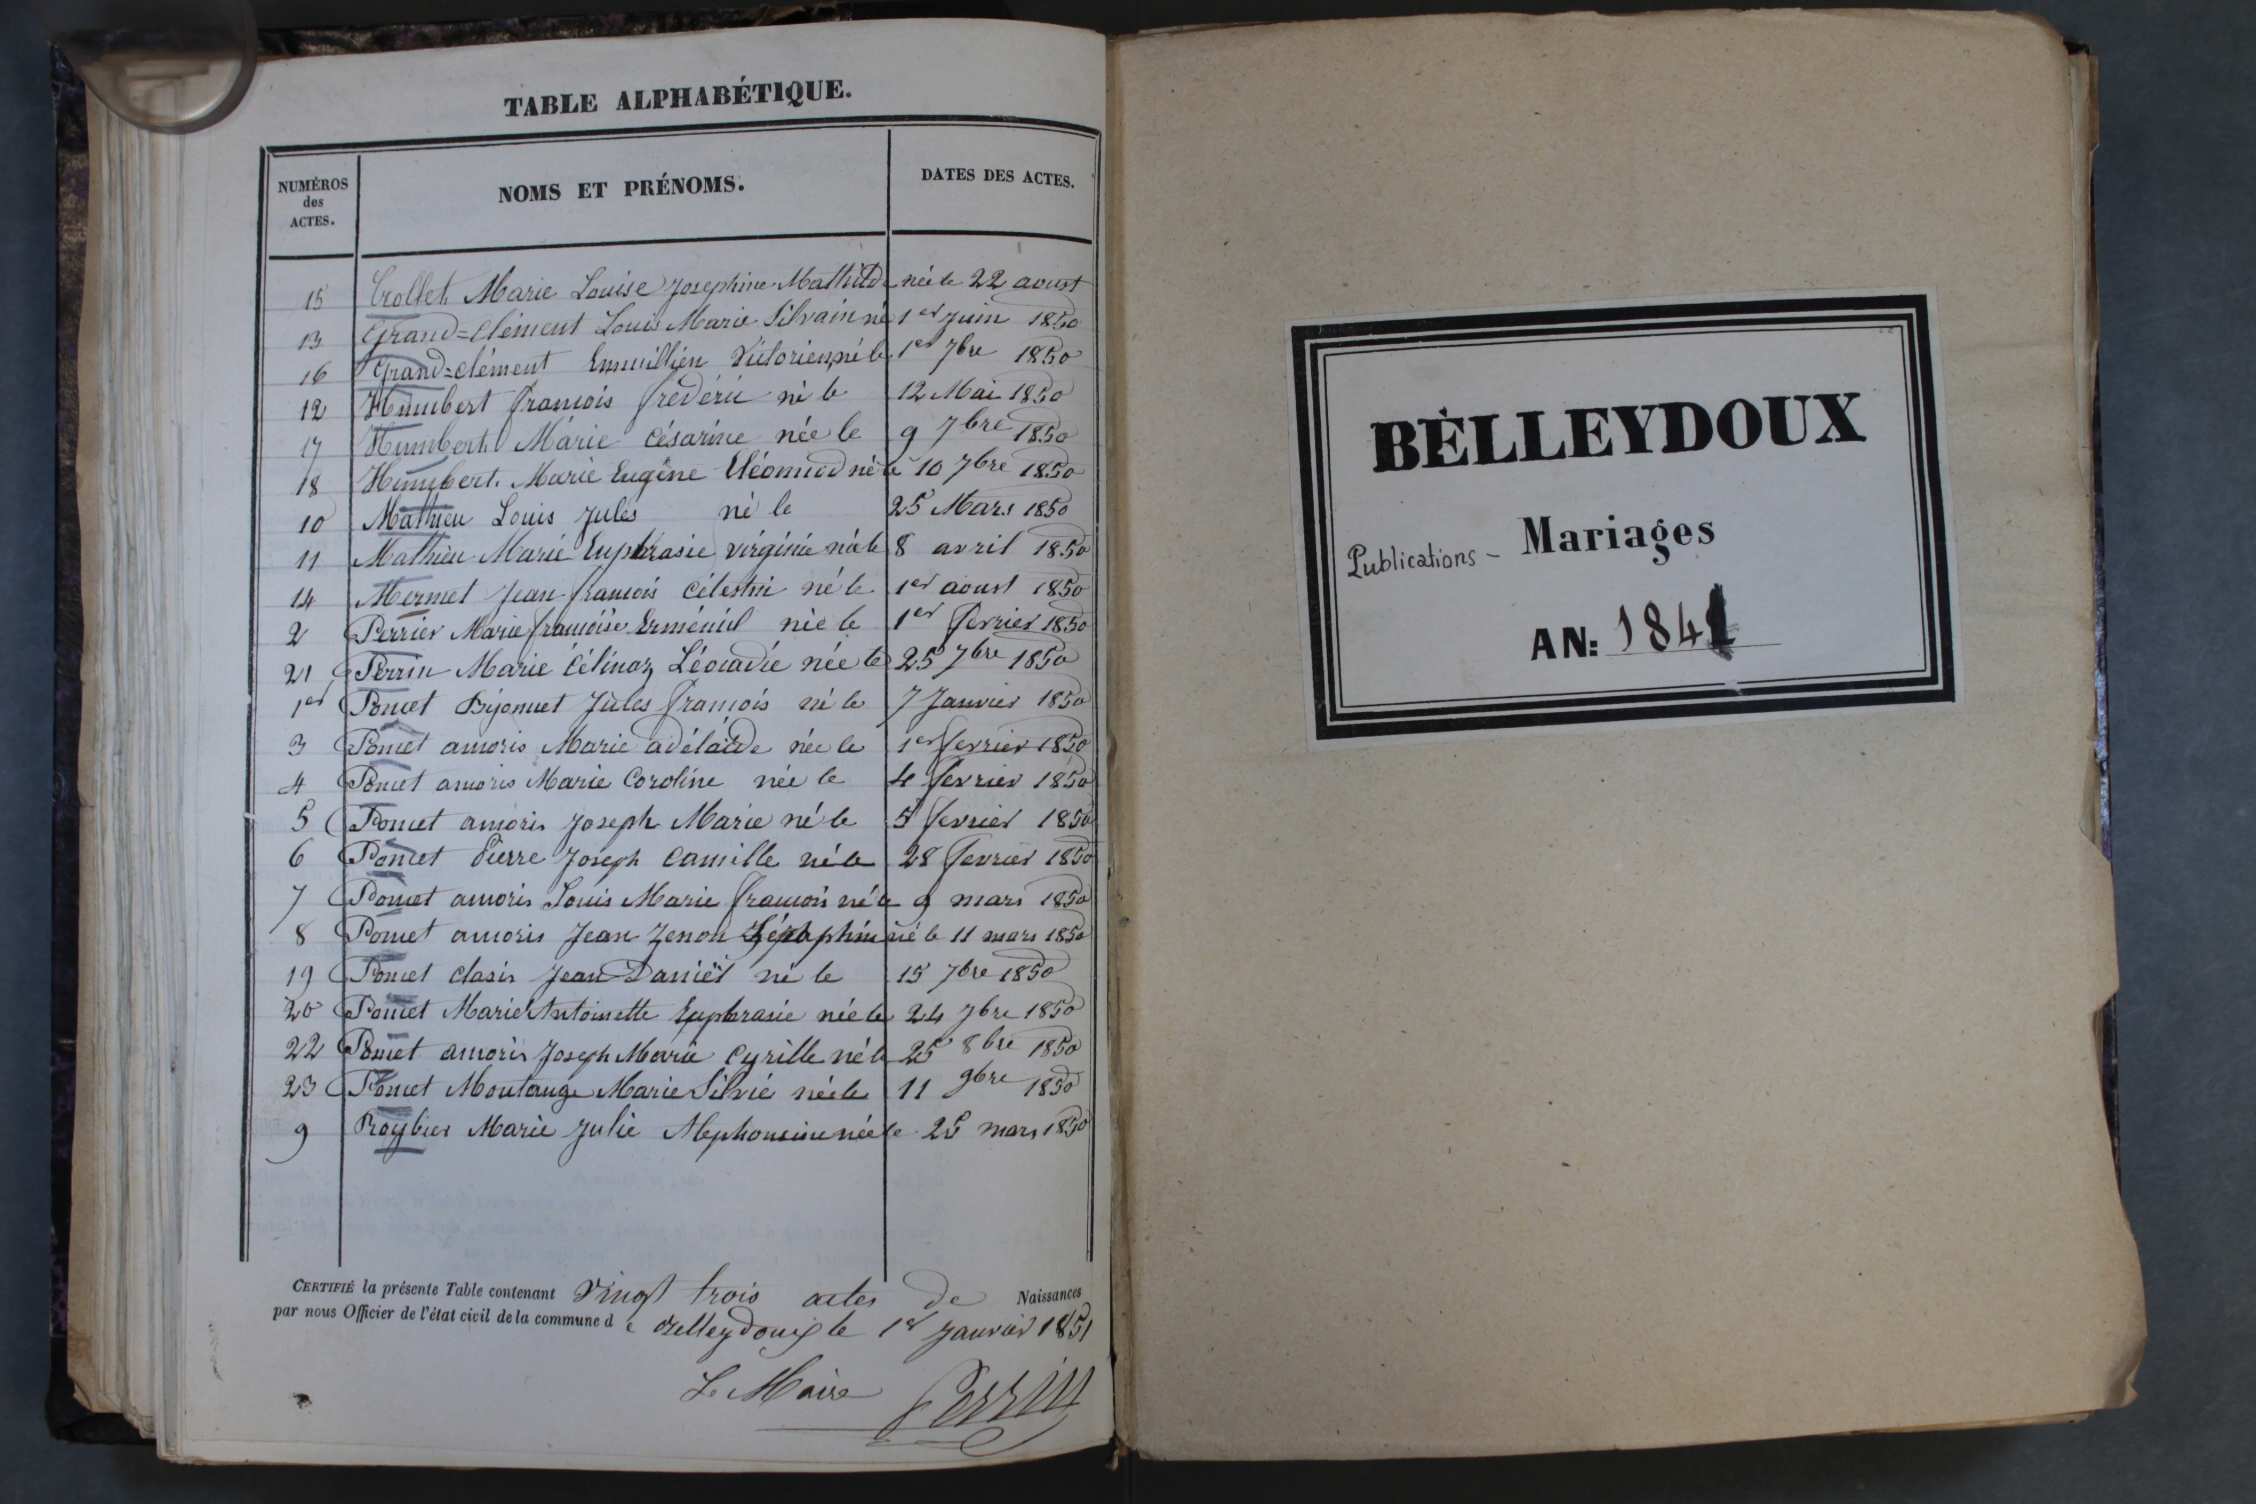 TABLE ALPHABÉTIQUE.
NUMÉROS des ACTES. NOMS ET PRÉNOMS. DATES DES ACTES.
15 Crollet Marie Louise Josephine Mathilde née le 22 aoust
13 Grand=Clément Louis Marie Silvain né 1er juin 1850
16 Grand=clément Victorien né le 1er 7bre 1850
12 Humbert françois frédéric né le 12 Mai 1850
17 Humbert Marie Césarine née le 9 7bre 1850
18 Humbert Marie Eugène né le 10 7bre 1850
10 Mathieu Louis Jules né le 25 Mars 1850
11 Mathieu Marie Euphrasie virginie née le 8 avril 1850
14 Mermet Jean françois Célestin né le 1er aoust 1850
2 Perrier Marie françoise née le 1er fevrier 1850
21 Perrin Marie Célinaz Léocadie née le 25 7bre 1850
1er Poncet Bijonnet Jules françois né le 7 Janvier 1850
3 Poncet amoris Marie adélaïde née le 1er fevrier 1850
4 Poncet amoris Marie Coroline née le 4 fevrier 1850
5 Poncet amoris Joseph Marie né le 5 fevrier 1850
6 Poncet Pierre Joseph Camille né le 28 fevrier 1850
7 Poncet amoris Louis Marie françois né le 9 mars 1850
8 Poncet amoris Jean Zenon né le 11 mars 1850
19 Poncet clasis Jean Daniel né le 15 7bre 1850
20 Poncet Marie Antoinette Euphrasie née le 24 7bre 1850
22 Poncet amoris Joseph Marie Cyrille né le 25 8bre 1850
23 Poncet Montange Marie Silvie née le 11 9bre 1850
9 Roybier Marie Julie Alephonsine née le 25 mars 1850
CERTIFIÉ la présente Table contenant vingt trois actes de Naissances
par nous Officier de l'état civil de la commune de Belleydoux le 1er Janvier 1851
Le Maire Perrin
BÉLLEYDOUX
Publications - Mariages
AN: 1841